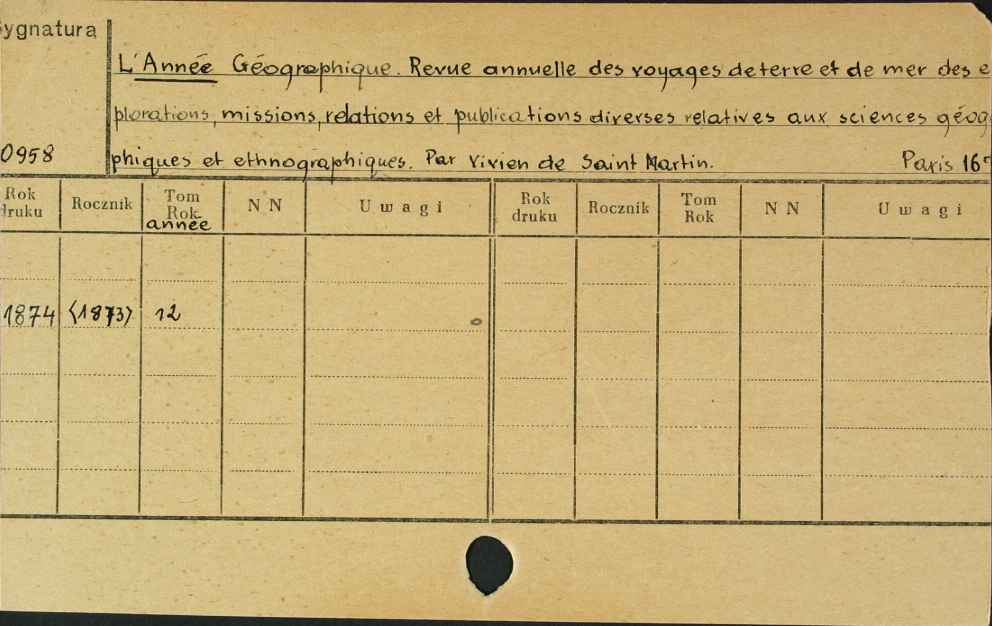 ygnatura
L'Année Géographique. Revue annuelle des voyages de terre et de mer des e
plorations, missions, relations et publications diverses relatives aux sciences géog
0958
phiques et ethnographiques. Par Vivien de Saint Martin. Paris 16°
Rok druku Rocznik Tom Rok année NN Uwagi Rok druku Rocznik Tom Rok NN Uwagi
1874 (1873) 12